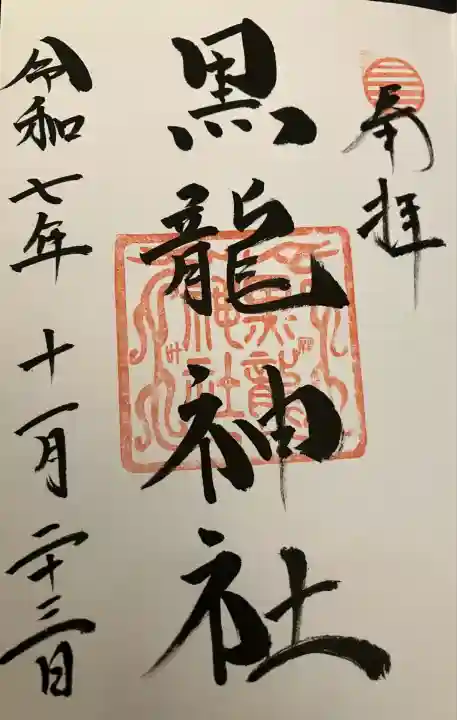 奉拝
黒龍神社
黒龍
神社
令和七年 十一月 二十三日